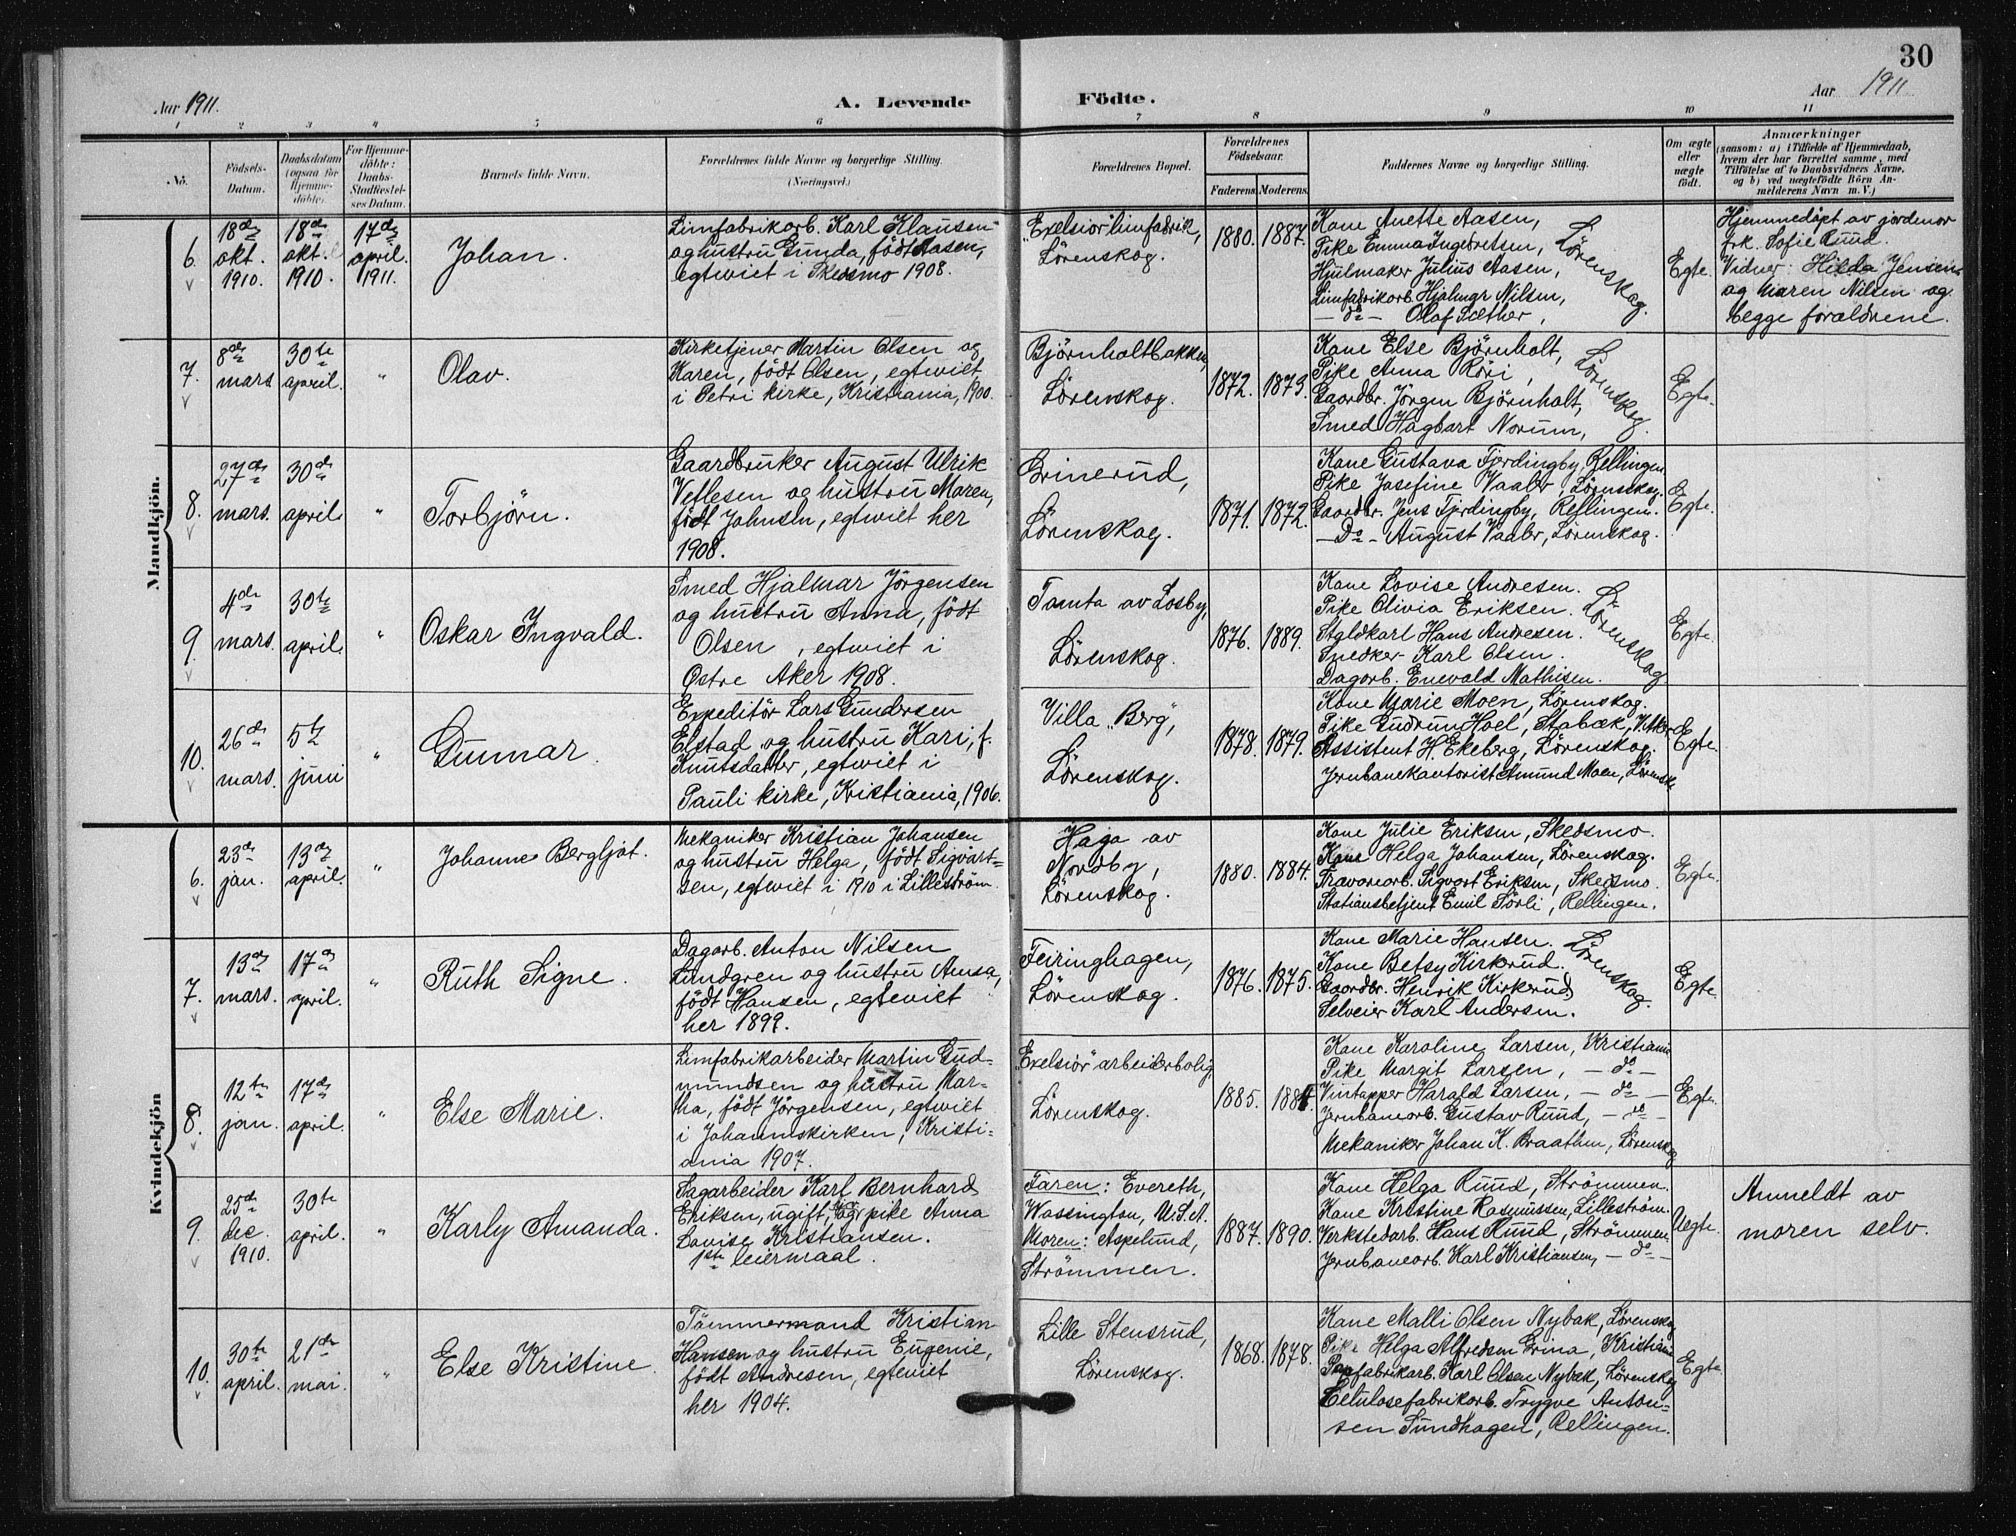 30
Aar 1911.
A. Levende Födte.
Aar 1911
1 2 3 4 5 6 7 8 9 10 11
No.
Födsels-
Datum.
Daabsdatum
(ogsaa for
Hjemme-
döbte).
For Hjemme-
döbte:
Daabs-
Stadfæstel-
ses Datum.
Barnets fulde Navn.
Forældrenes fulde Navne og borgerlige Stilling.
(Næringsvei.)
Forældrenes Bopæl.
Forældrenes
Födselsaar.
Faderens. Moderens.
Faddernes Navne og borgerlige Stilling.
Om ægte
eller
uægte
födt.
Anmærkninger
(saasom: a) i Tilfælde af Hjemmedaab,
hvem der har forrettet samme, med
Tilföielse af to Daabsvidners Navne.
og b) ved uægtefödte Börn An-
melderens Navn m. V.)
Mandkjön.
6.
18de
okt.
1910.
18de
okt.
1910.
17de
april.
1911.
Johan.
Limfabrikarb. Karl Klausen
og hustru Gunda, født Aasen,
egteviet i Skedsmo 1908.
"Exelsior" limfabrik,
Lørenskog.
1880. 1887.
Kone Anette Aasen,
Pike Emma Ingebretsen,
Hjulmaker Julius Aasen,
Limfabrikarb. Hjalmar Nilsen,
— do — Olaf Sæther,
Lørenskog.
Egte.
Hjemmedøpt av jordmor
frk. Sofie Ruud.
Vidner: Hilda Jensen
og Maren Nilsen og
begge forældrene.
7.
8de
mars
30te
april.
"
Olav.
Kirketjener Martin Olsen og
Karen, født Olsen, egteviet
i Petri kirke, Kristiania, 1900.
Bjørnholtbakken,
Lørenskog.
1872. 1873.
Kone Else Bjørnholt,
Pike Anna Røri,
Gaardbr. Jørgen Bjørnholt,
Smed Hagbart Norum,
Lørenskog.
Egte.
8.
27de
mars.
30de
april.
"
Torbjørn.
Gaardbruker August Ulrik
Vetlesen og hustru Maren,
født Johnsen, egteviet her
1908.
Grinerud,
Lørenskog.
1871. 1872.
Kone Gustava Fjerdingby, Rellingen
Pike Josefine Vaaler, Lørenskog.
Gaardbr. Jens Fjerdingby, Rellingen.
— Do — August Vaaler, Lørenskog.
Egte.
9.
4de
mars.
30te
april.
"
Oskar Ingvald.
Smed Hjalmar Jørgensen
og hustru Anna, født
Olsen, egteviet i
Østre Aker 1908.
Tomta av Losby,
Lørenskog.
1876. 1889.
Kone Lovise Andresen.
Pike Olivia Eriksen.
Staldkarl Hans Andresen.
Snedker Karl Olsen.
Dagarb. Enevald Mathisen.
Lørenskog
Egte.
10.
26de
mars.
5te
juni
"
Gunnar.
Expeditør Lars Gundersen
Elstad og hustru Kari, f.
Knutsdatter, egteviet i
Pauli kirke, Kristiania, 1906.
Villa "Berg",
Lørenskog.
1878. 1879.
Kone Marie Moen, Lørenskog.
Pike Gudrun Hoel, Stabæk, V. Aker
Assistent H. Ekeberg, Lørenskog.
Jernbanekontorist Amund Moen, Lørensk.
Egte.
Kvindekjön
6.
23de
jan.
13de
april.
"
Johanne Bergljot.
Mekaniker Kristian Johansen
og hustru Helga, født Sigvart-
sen, egteviet i 1910 i Lillestrøm.
Haga av
Nordby,
Lørenskog.
1880. 1884.
Kone Julie Eriksen, Skedsmo.
Kone Helga Johansen, Lørenskog.
Travarearb. Sigvart Eriksen, Skedsmo.
Stationsbetjent Emil Sørli, Rellingen.
Egte.
7.
13de
mars.
17de
april.
"
Ruth Signe.
Dagarb. Anton Nilsen
Lundgren og hustru Anna,
født Hansen, egteviet
her 1899.
Feiringhagen,
Lørenskog.
1876. 1875.
Kone Marie Hansen.
Kone Betsy Kirkerud.
Gaardbr. Henrik Kirkerud
Selveier Karl Andersen.
Lørenskog.
Egte.
8.
12te
jan.
17de
april.
"
Else Marie.
Limfabrikarbeider Martin Gud-
mundsen og hustru Mar-
tha, født Jørgensen, egteviet
i Johanneskirken, Kristi-
ania 1907.
"Exelsior" arbeiderbolig
Lørenskog.
1885.
Kone Karoline Larsen, Kristiania
Pike Margit Larsen, — do —
Vintapper Harald Larsen, — do —
Jernbanearb. Gustav Ruud, — do —
Mekaniker Johan K. Braathen, Lørenskog
Egte.
9.
25de
dec.
1910.
30te
april.
"
Karly Amanda.
Sagarbeider Karl Bernhard
Eriksen, ugift, og pike Anna
Lovise Kristiansen.
1ste leiermaal.
Faren: Evereth,
Wassington, U.S.A.
Moren: Aspelund,
Strømmen.
1887. 1890.
Kone Helga Ruud, Strømmen.
Kone Kristine Rasmussen, Lillestrøm.
Verkstedarb. Hans Ruud, Strømmen.
Jernbanearb. Karl Kristiansen, — do —
Uegte.
Anmeldt av
moren selv.
10.
30te
april.
21de
mai.
"
Else Kristine.
Tømmermand Kristian
Hansen og hustru Eugenie,
født Andresen, egteviet
her 1904.
Lille Stensrud,
Lørenskog.
1868. 1878.
Kone Malli Olsen Nybak, Lørenskog
Pike Helga Alfredsen Grina, Kristiania
Papfabrikarb. Karl Olsen Nybak, Lørenskog
Celulosefabrikarb. Trygve Anton-
sen Sundhagen, Rellingen.
Egte.